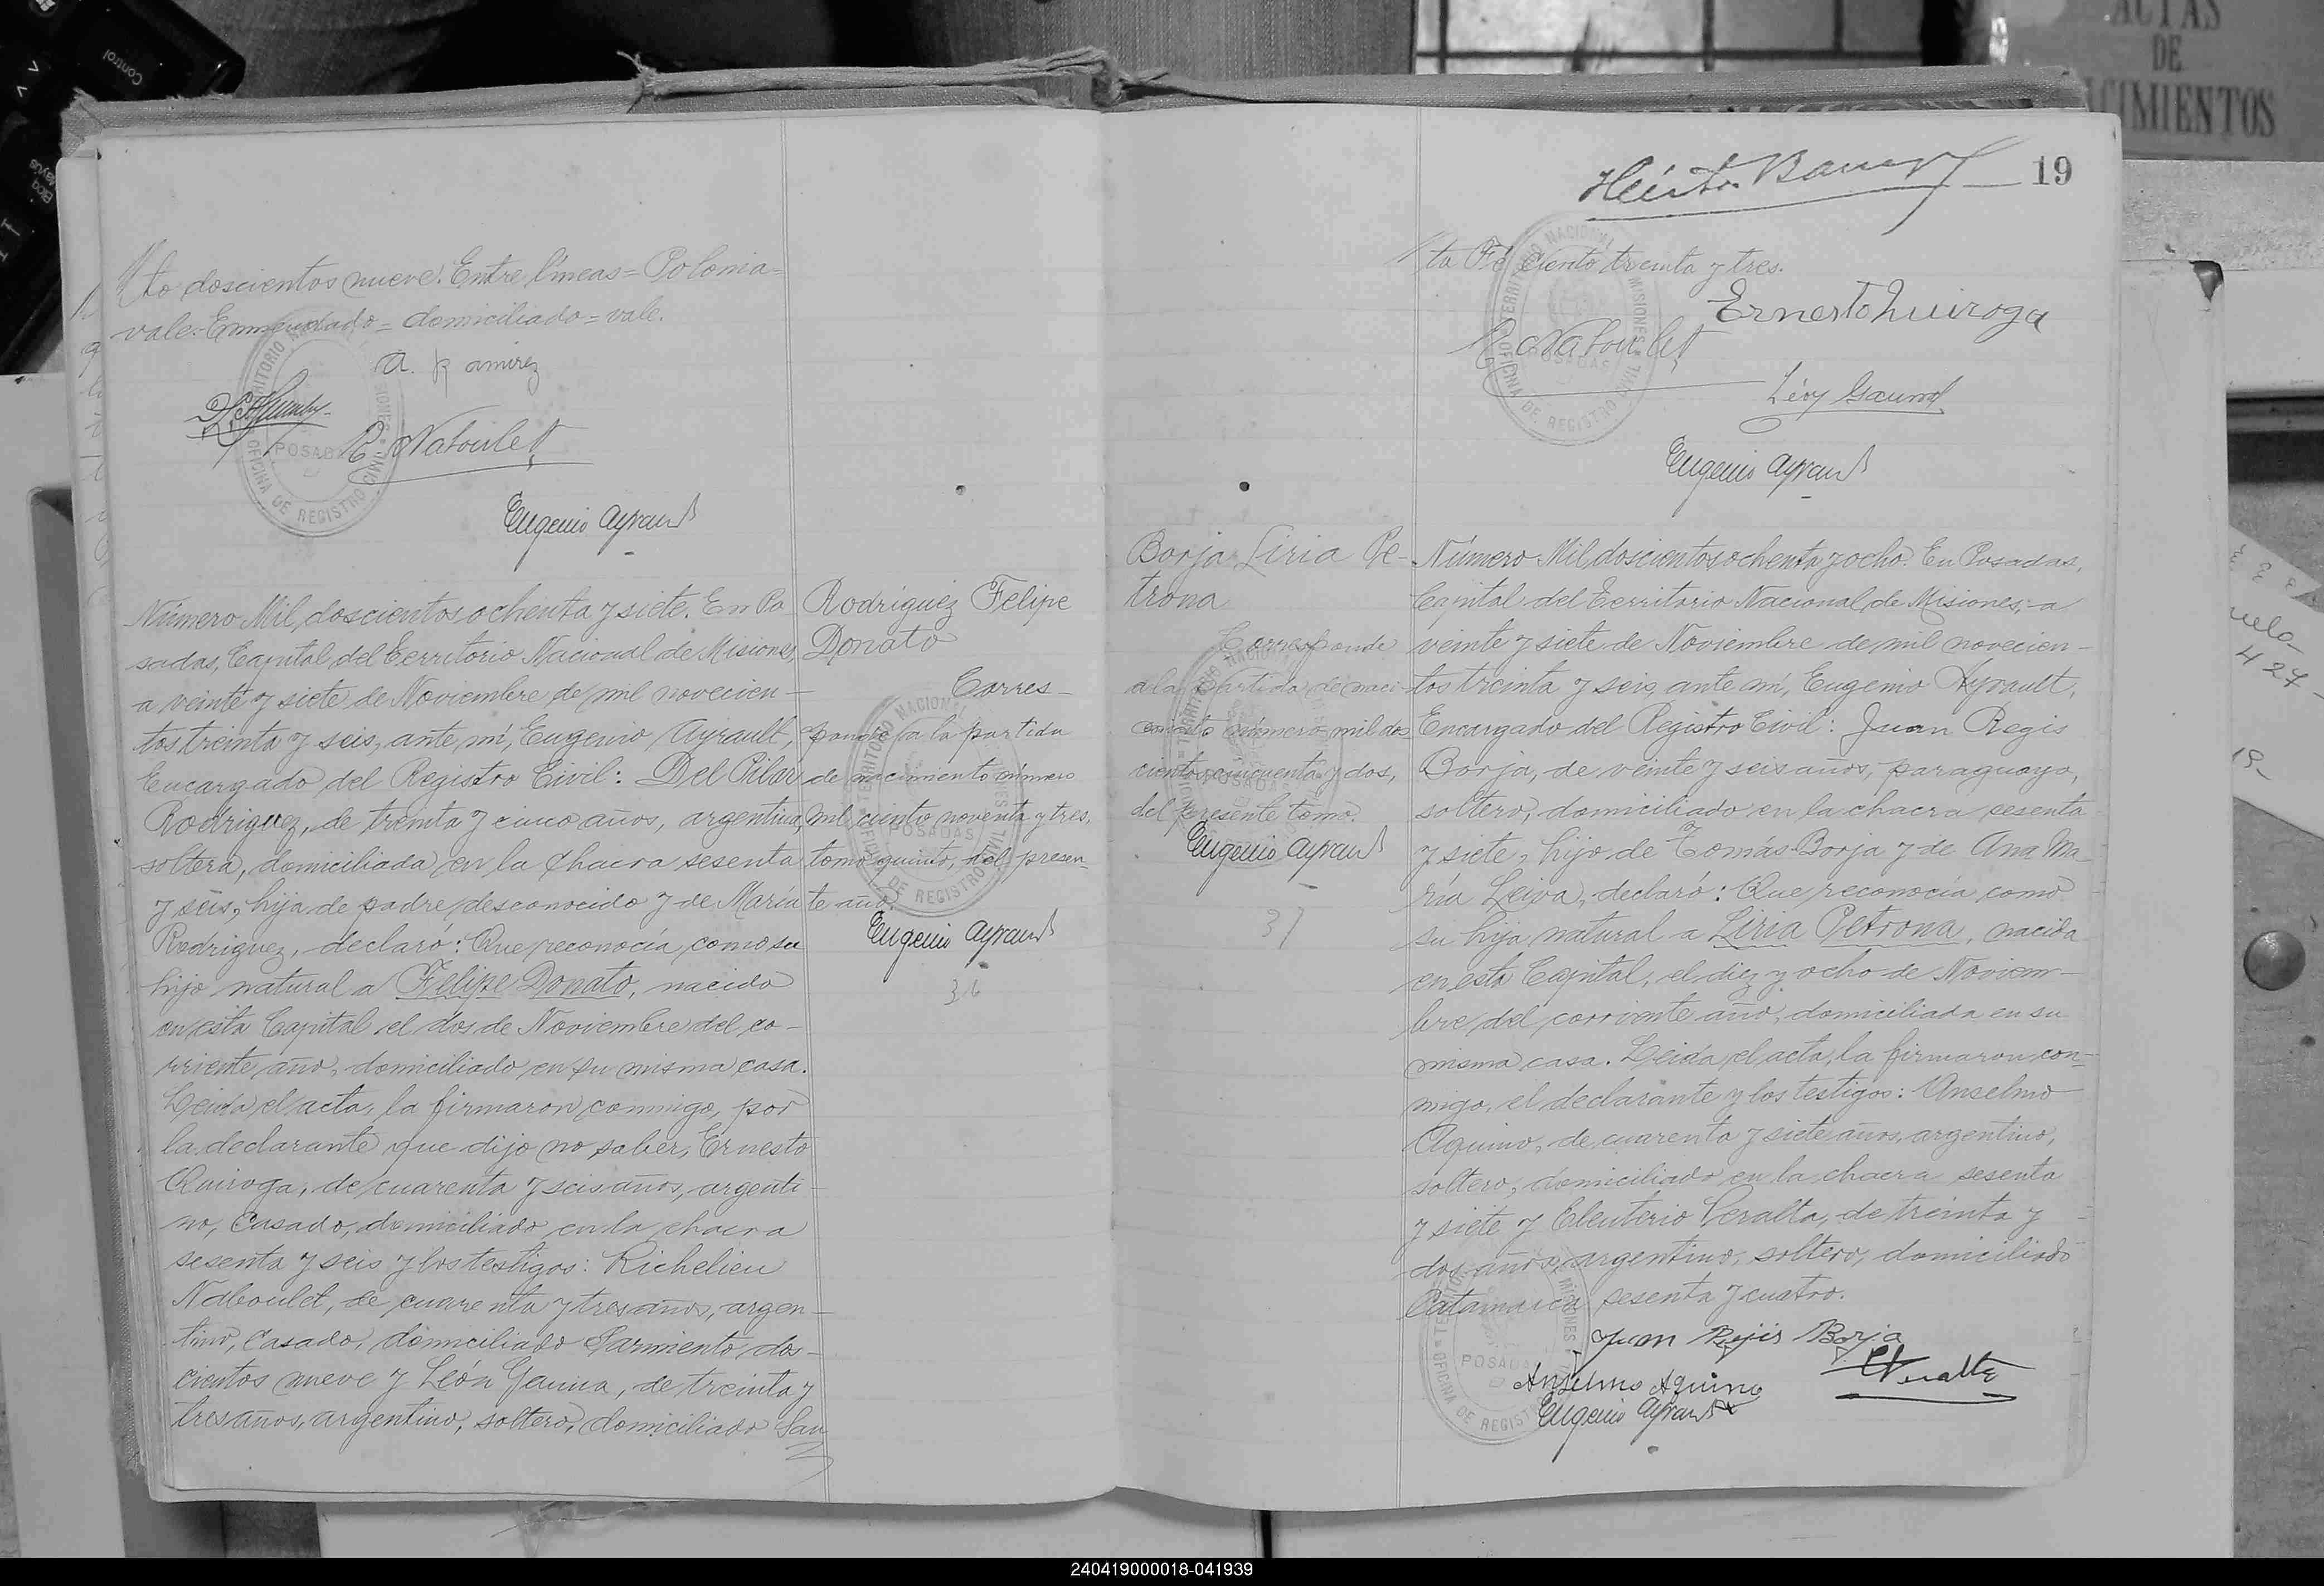 to doscientos nueve. Entre líneas = Polonia =
vale. Enmendado = domiciliado = vale.
A. Ramirez
R. Naboulet
Eugenio Ayrault
Número Mil doscientos ochenta y siete. En Po
sadas, Capital del Territorio Nacional de Misiones,
a veinte y siete de Noviembre de mil novecien-
tos treinta y seis, ante mí, Eugenio Ayrault,
Encargado del Registro Civil: Del Pilar
Rodriguez, de treinta y cinco años, argentina,
soltera, domiciliada en la chacra sesenta
y seis, hija de padre desconocido y de María
Rodriguez, declaró: Que reconocía como su
hijo natural a Felipe Donato, nacido
en esta Capital el dos de Noviembre del co-
rriente año, domiciliado en su misma casa.
Leída el acta, la firmaron conmigo, por
la declarante que dijo no saber, Ernesto
Quiroga, de cuarenta y seis años, argenti-
no, casado, domiciliado en la chacra
sesenta y seis y los testigos: Richelieu
Naboulet, de cuarenta y tres años, argen-
tino, casado, domiciliado Sarmiento dos-
cientos nueve y León Gauna, de treinta y
tres años, argentino, soltero, domiciliado San
Rodriguez Felipe
Donato
Corres-
ponde a la partida
de nacimiento número
mil ciento noventa y tres,
tomo quinto, del presen-
te año.
Eugenio Ayrault
36
19
ta Fé ciento treinta y tres.
Ernesto Quiroga
R. Naboulet
Léon Gauna
Eugenio Ayrault
Borja Liria Pe-
trona
Corresponde
a la partida de naci-
miento número mil dos
cientos cincuenta y dos,
del presente tomo.
Eugenio Ayrault
37
Número Mil doscientos ochenta y ocho. En Posadas,
Capital del Territorio Nacional de Misiones, a
veinte y siete de Noviembre de mil novecien-
tos treinta y seis, ante mí, Eugenio Ayrault,
Encargado del Registro Civil: Juan Regis
Borja, de veinte y seis años, paraguayo,
soltero, domiciliado en la chacra sesenta
y siete, hijo de Tomás Borja y de Ana Ma-
ría Leiva, declaró: Que reconocía como
su hija natural a Liria Petrona, nacida
en esta Capital, el diez y ocho de Noviem-
bre del corriente año, domiciliada en su
misma casa. Leída el acta, la firmaron con-
migo, el declarante y los testigos: Anselmo
Aquino, de cuarenta y siete años, argentino,
soltero, domiciliado en la chacra sesenta
y siete y Eleuterio Peralta, de treinta y
dos años, argentino, soltero, domiciliado
Catamarca sesenta y cuatro.
Juan Rejis Borja
Anselmo Aquino
EPeralta
Eugenio Ayrault
TERRITORIO NACIONAL MISIONES
OFICINA DE REGISTRO CIVIL
POSADAS
ACTAS
DE
CIMIENTOS
Control
Bloq
Mayús
427
240419000018-041939